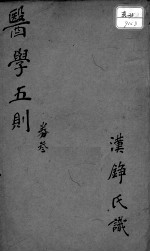 醫學五則
卷叁
漢錚氏識